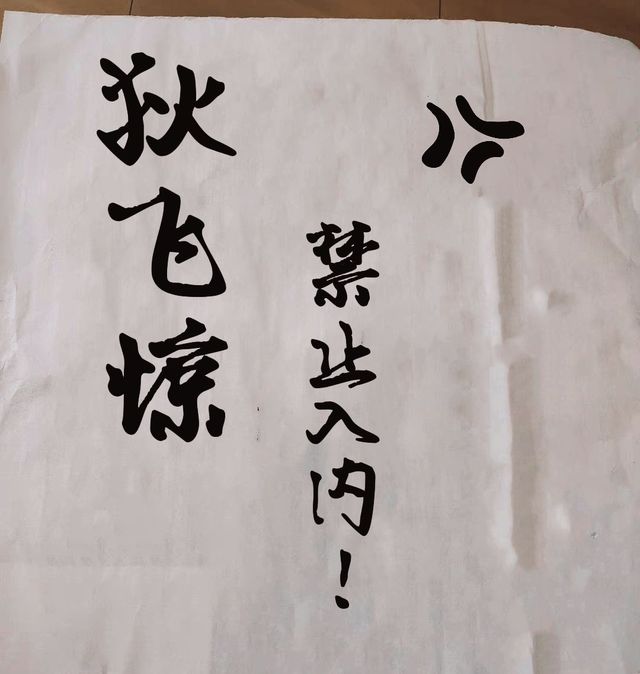 狄飞惊
禁止入内！